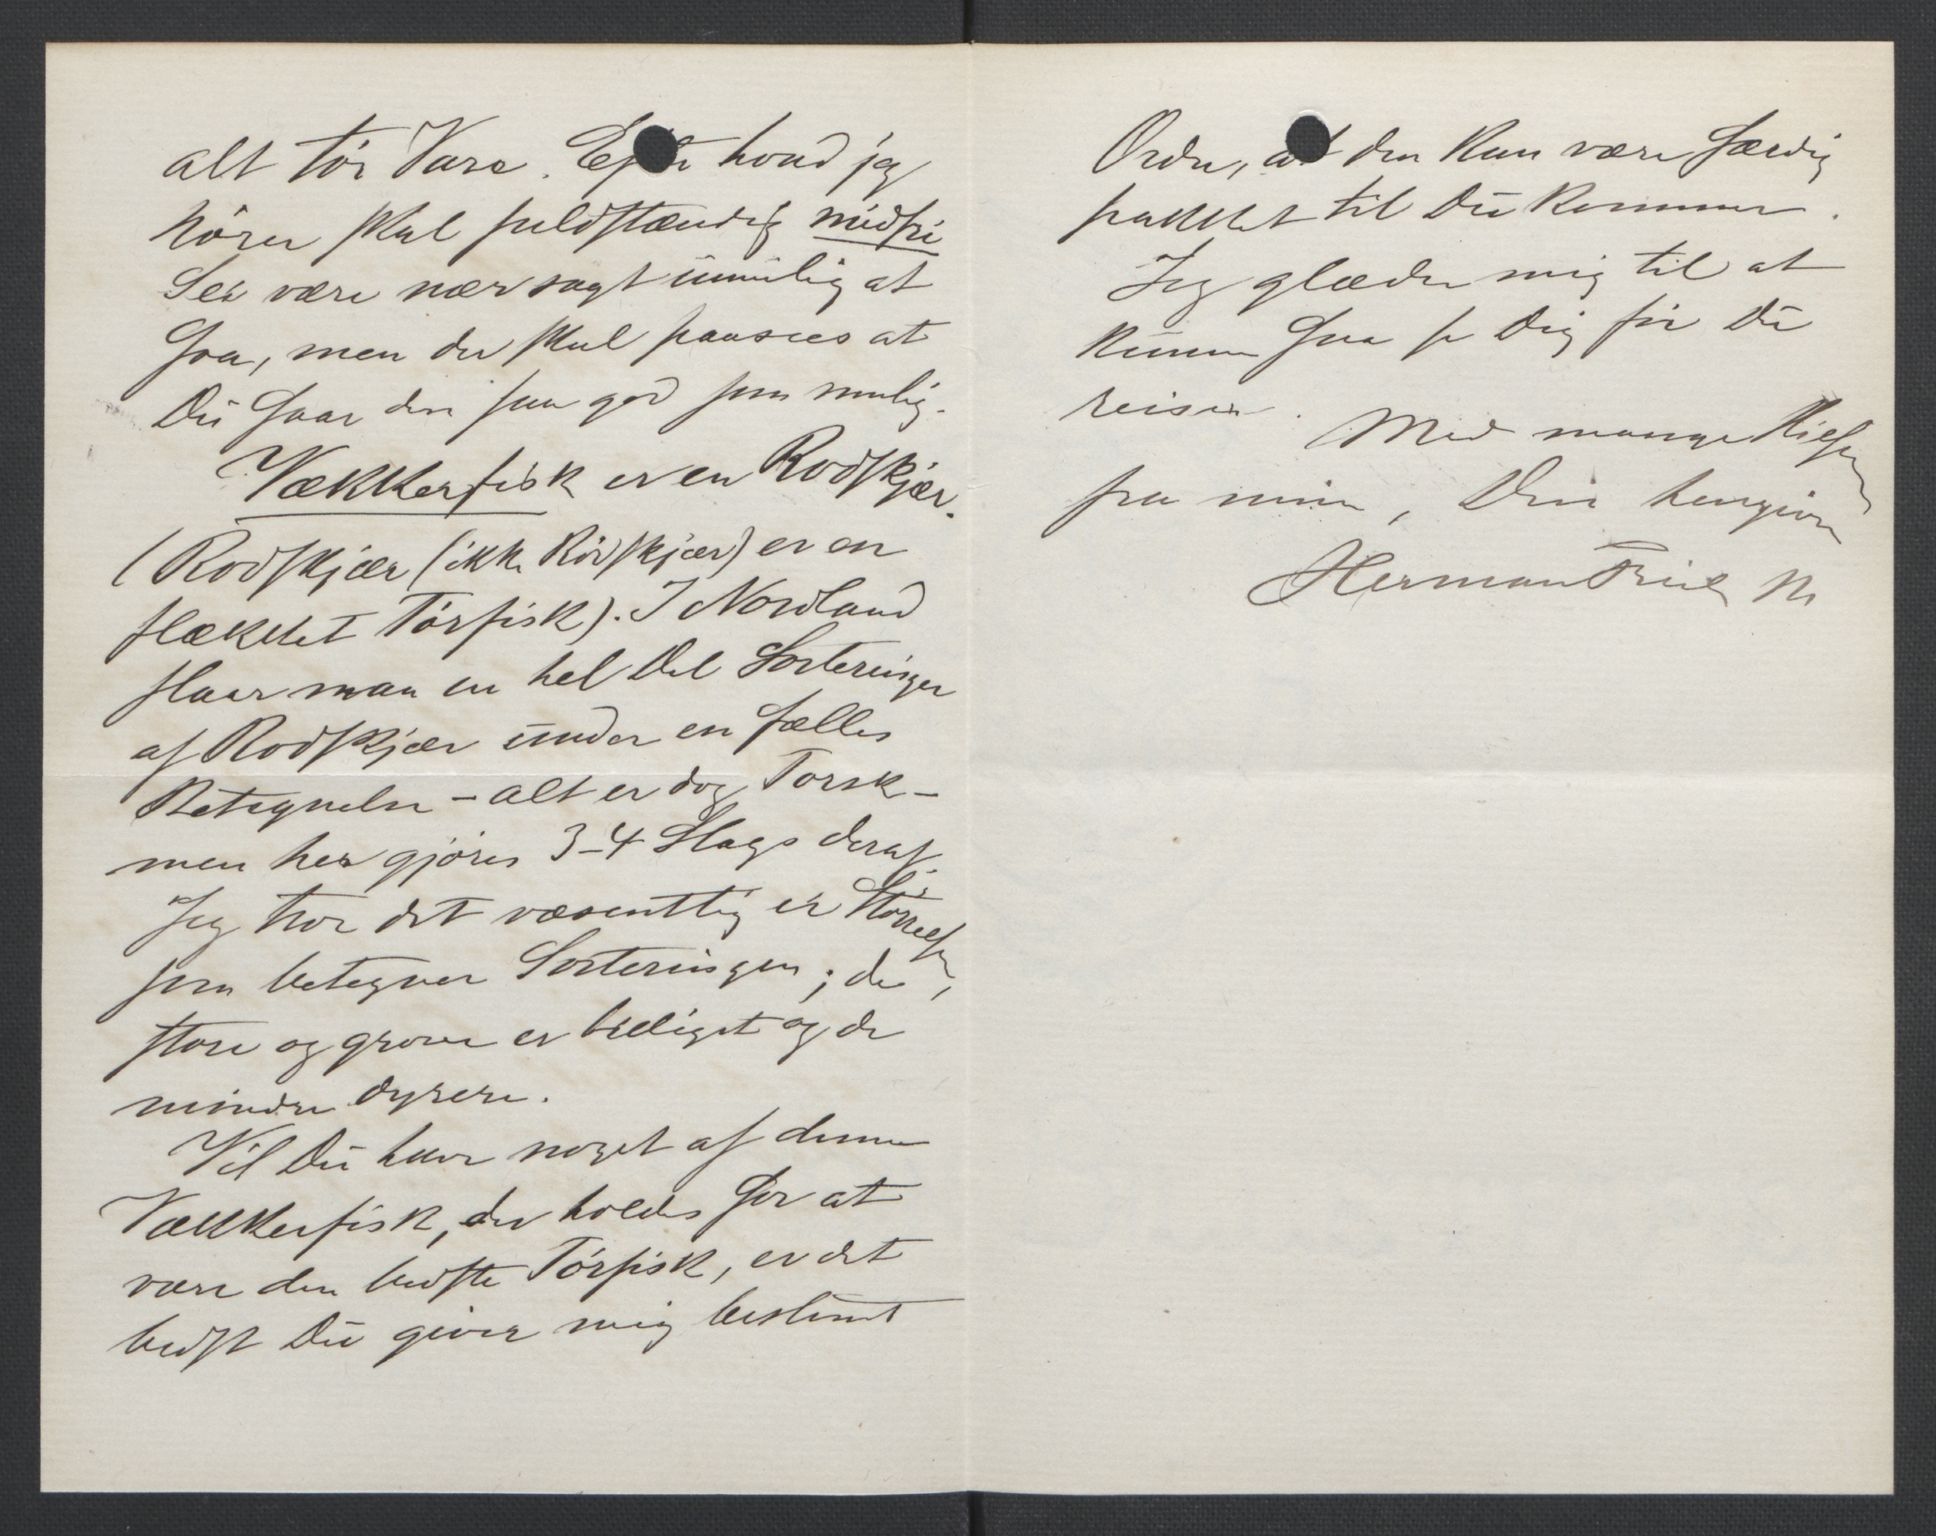 alt tör Vare. Efter hvad jeg
hörer skal fuldstændig midfri
Sei være nær sagt ümulig at
faa, men der skal paasees at
Dü faar den saa god som mulig.
Vækkerfisk er en Rodskjær.
(Rodskjær (ikke Rödskjær) er en
flækket Törfisk). I Nordland
slaar man en hel Del Sorteringer
af Rodskjær ünder en fælles
Betegnelse – alt er dog Torsk –
men her gjöres 3–4 Slags deraf.
Jeg tror det væsentlig er Störrelsen,
som betegner Sorteringen; de
store og grove er billigst og de
mindre dyrere.
Vil Dü have noget af denne
Vækkerfisk, der holdes for at
være den bedste Törfisk, er det
bedst Dü giver mig bestemt
Ordre, at den kan være færdig
pakket til Dü kommer.
Jeg glæder mig til at
künne faa se Dig för Dü
reiser.
Med mange Hilsener
fra mine, Din hengivne
Herman Friele